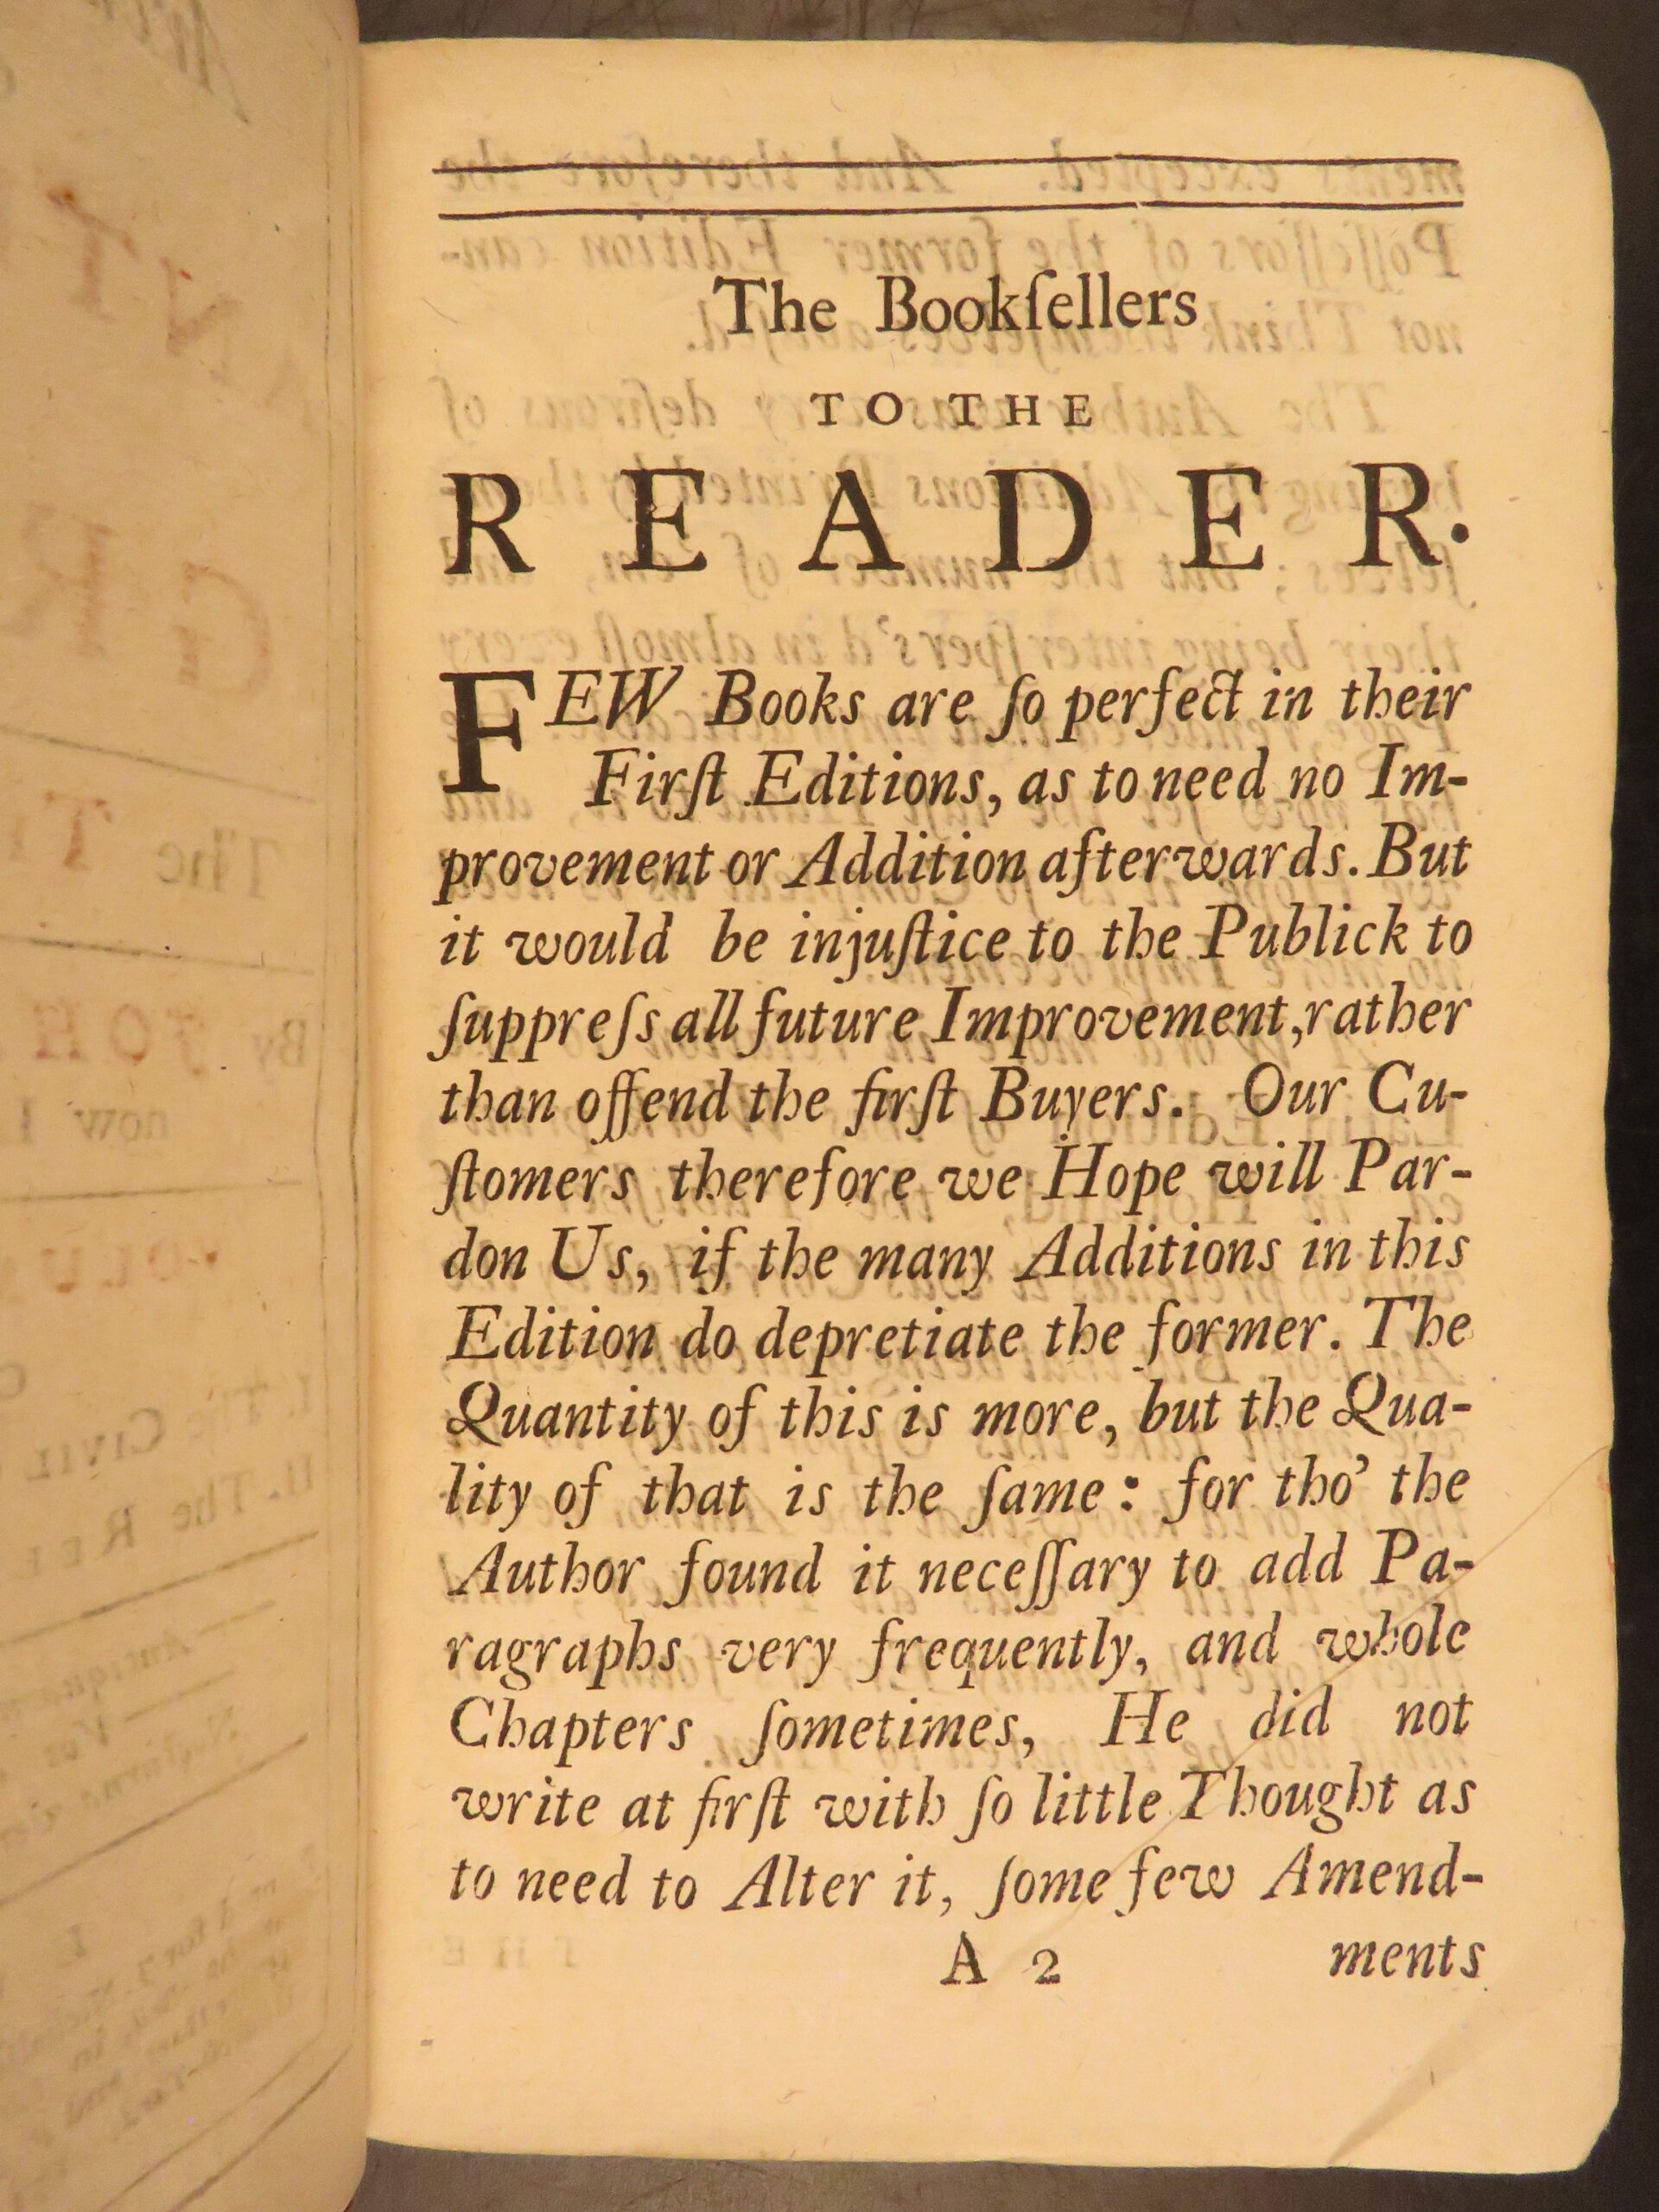 The Bookſellers
TO THE
READER.
FEW Books are ſo perfect in their
Firſt Editions, as to need no Im-
provement or Addition afterwards. But
it would be injuſtice to the Publick to
ſuppreſs all future Improvement, rather
than offend the firſt Buyers. Our Cu-
ſtomers therefore we Hope will Par-
don Us, if the many Additions in this
Edition do depretiate the former. The
Quantity of this is more, but the Qua-
lity of that is the ſame: for tho' the
Author found it neceſſary to add Pa-
ragraphs very frequently, and whole
Chapters ſometimes, He did not
write at firſt with ſo little Thought as
to need to Alter it, ſome few Amend-
A 2 ments